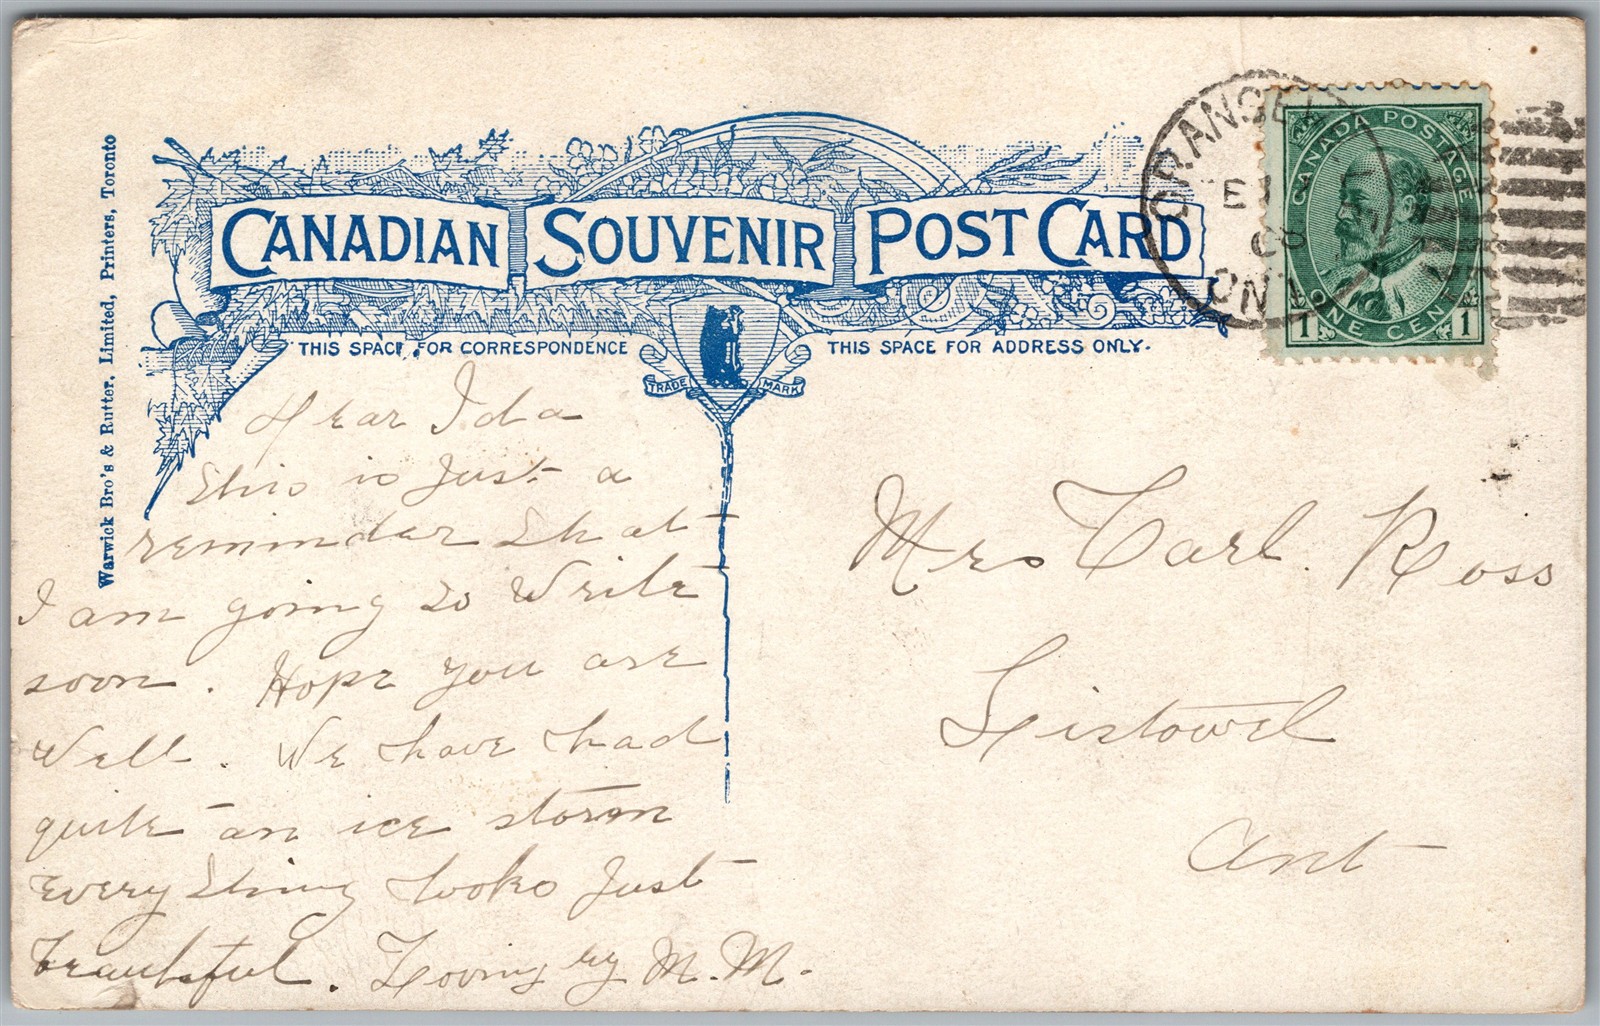 Warwick Bro's & Rutter, Limited, Printers, Toronto
CANADIAN SOUVENIR POST CARD
THIS SPACE FOR CORRESPONDENCE
THIS SPACE FOR ADDRESS ONLY.
TRADE MARK
ORANGEV
08
ONT
CANADA POSTAGE
ONE CENT
1 1
Dear Ida
This is just a
reminder that
I am going to write
soon. Hope you are
Well. We have had
quite an ice storm
every thing looks just
beautiful. Lovingly M.M.
Mrs Carl. Ross
Listowel
Ont